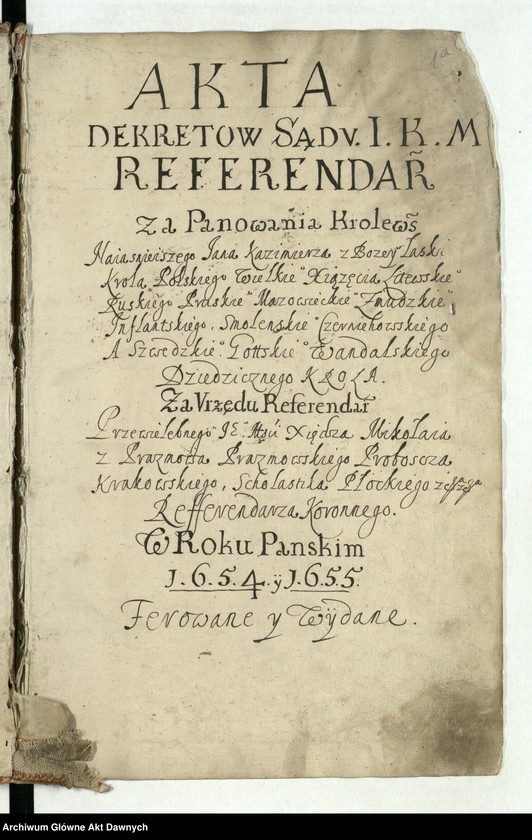 1a
AKTA
DEKRETOW SĄDV. I. K. M
REFERENDAR̃
Za Panowania Krolews̃
Naiasnieiszego Jana Kazimierza z Bozey Łaski
Krola Polskiego Wielkie° Xiązęcia Litewskie°
Ruskiego Pruskie° Mazowieckie° Zmudzkie°
Inflantskiego, Smolenskie° Czerniehowskiego
A Szwedzkie° Gottskie° Wandalskiego
Dziedzicznego KROLA.
Za Vrzędu Referendar̃
Przewielebnego JE° Xiędza Mikołaia
z Prazmowa Prazmowskiego Proboscza
Krakowskiego, Scholastika Płockiego
Refferendarza Koronnego.
W Roku Panskim
1.6.5.4. ÿ 1.6.5.5.
Ferowane y Wÿdane.
Archiwum Główne Akt Dawnych